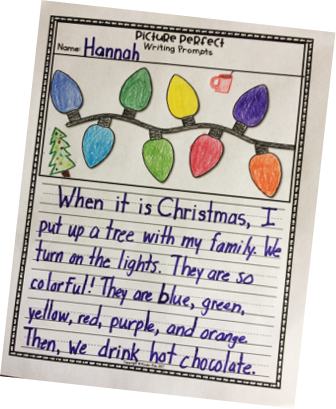 Picture Perfect
Writing Prompts
Name: Hannah
When it is Christmas, I
put up a tree with my family. We
turn on the lights. They are so
colorful! They are blue, green,
yellow, red, purple, and orange.
Then, we drink hot chocolate.